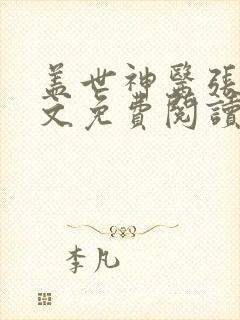 盖世神醫張
文免費閱讀
李凡